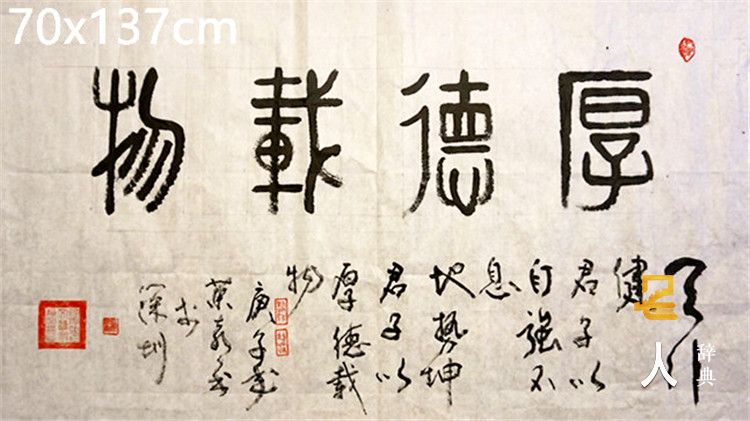 70x137cm
厚德載物
天行
健
君子以
自強不
息
地勢坤
君子以
厚德載
物
庚子
深圳
人
辞典